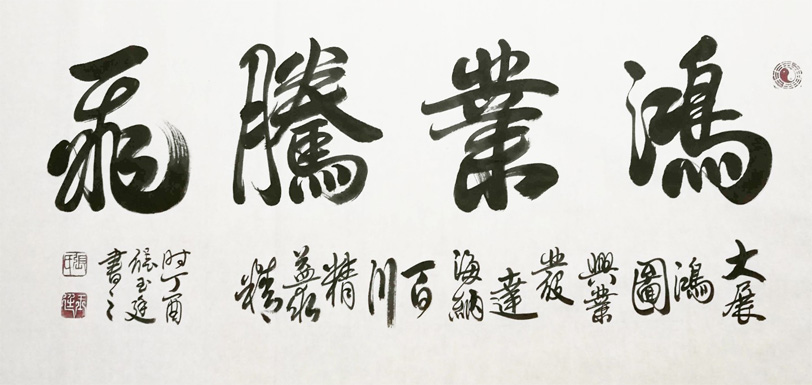 鴻業騰飛
大展鴻圖興業發達海納百川精益求精
时丁酉
張玉廷
書之